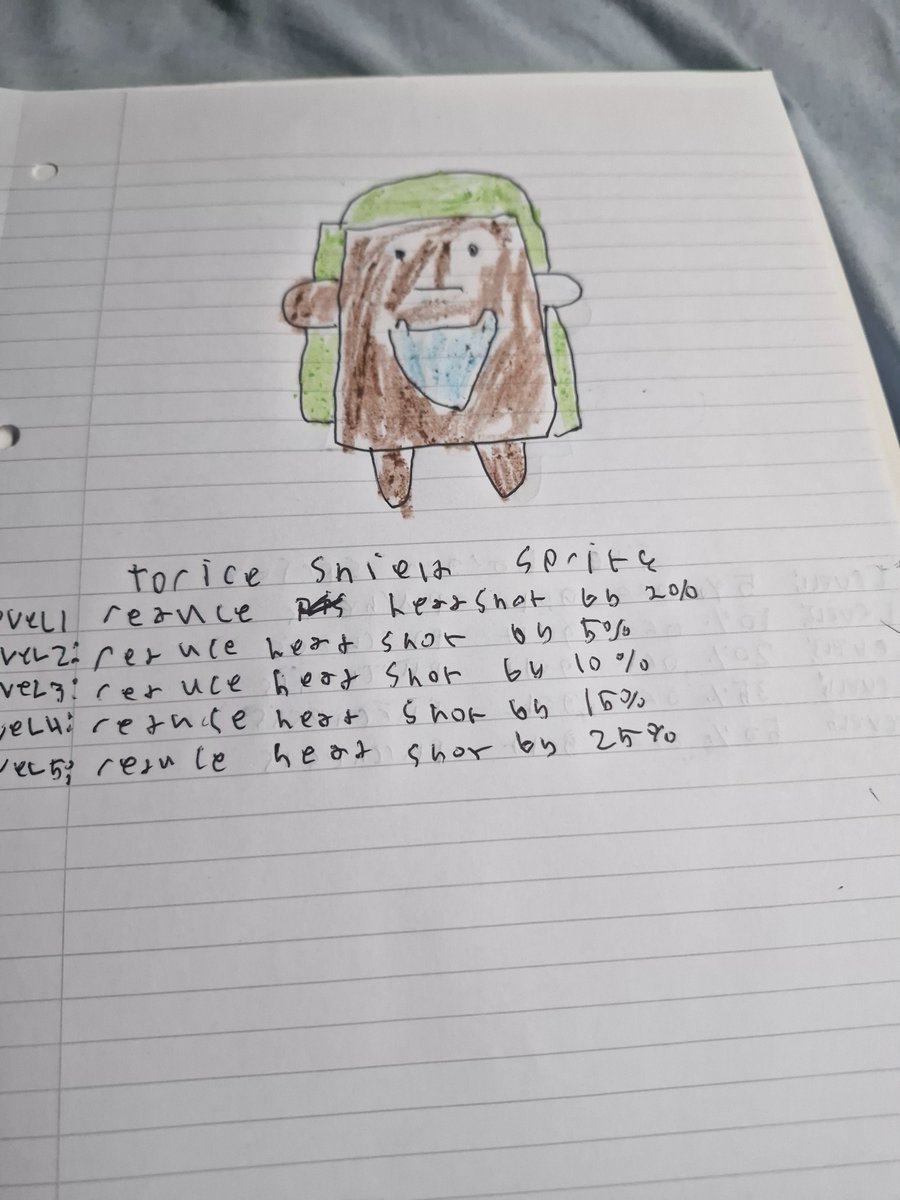 torice shield sprite
evel1 reduce headshot by 20%
vel2: reduce head shot by 5%
vel3: reduce head shot by 10%
vel4: reduce head shot by 15%
vel5: reduce head shot by 25%